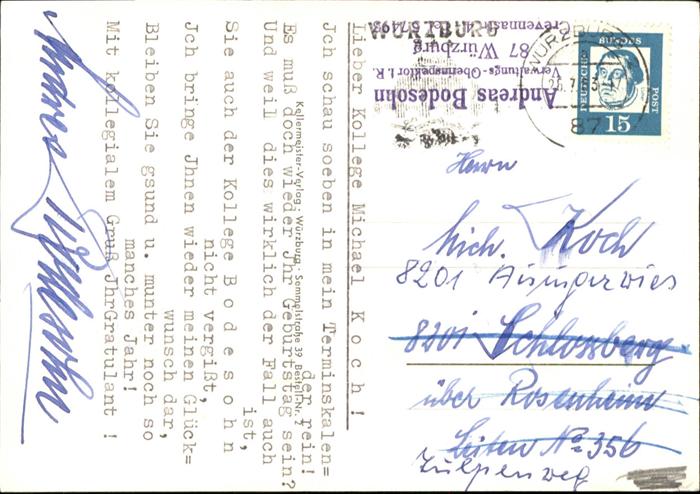 Lieber Kollege Michael K o c h !
Jch schau soeben in mein Terminskalen=
der rein!
Es muß doch wieder Jhr Geburtstag sein?
Und weil dies wirklich der Fall auch
ist,
Sie auch der Kollege B o d e s o h n
nicht vergißt,
Jch bringe Jhnen wieder meinen Glück=
wunsch dar,
Bleiben Sie gsund u. munter noch so
manches Jahr!
Mit kollegialem Gruß JhrGratulant !
Andreas Bodesohn
Kellermeister-Verlag · Würzburg · Semmelstraße 39 Bestell-Nr. 2
Andreas Bodesohn
Verwaltungs-Oberinspektor i. R.
87 Würzburg
WÜRZBURG
WÜRZBURG
87
DEUTSCHE
BUNDES
POST
15
Herrn
Mich. Koch
8201
8201 Schlossberg
über Rosenheim
Leiten No 356
Tulpenweg